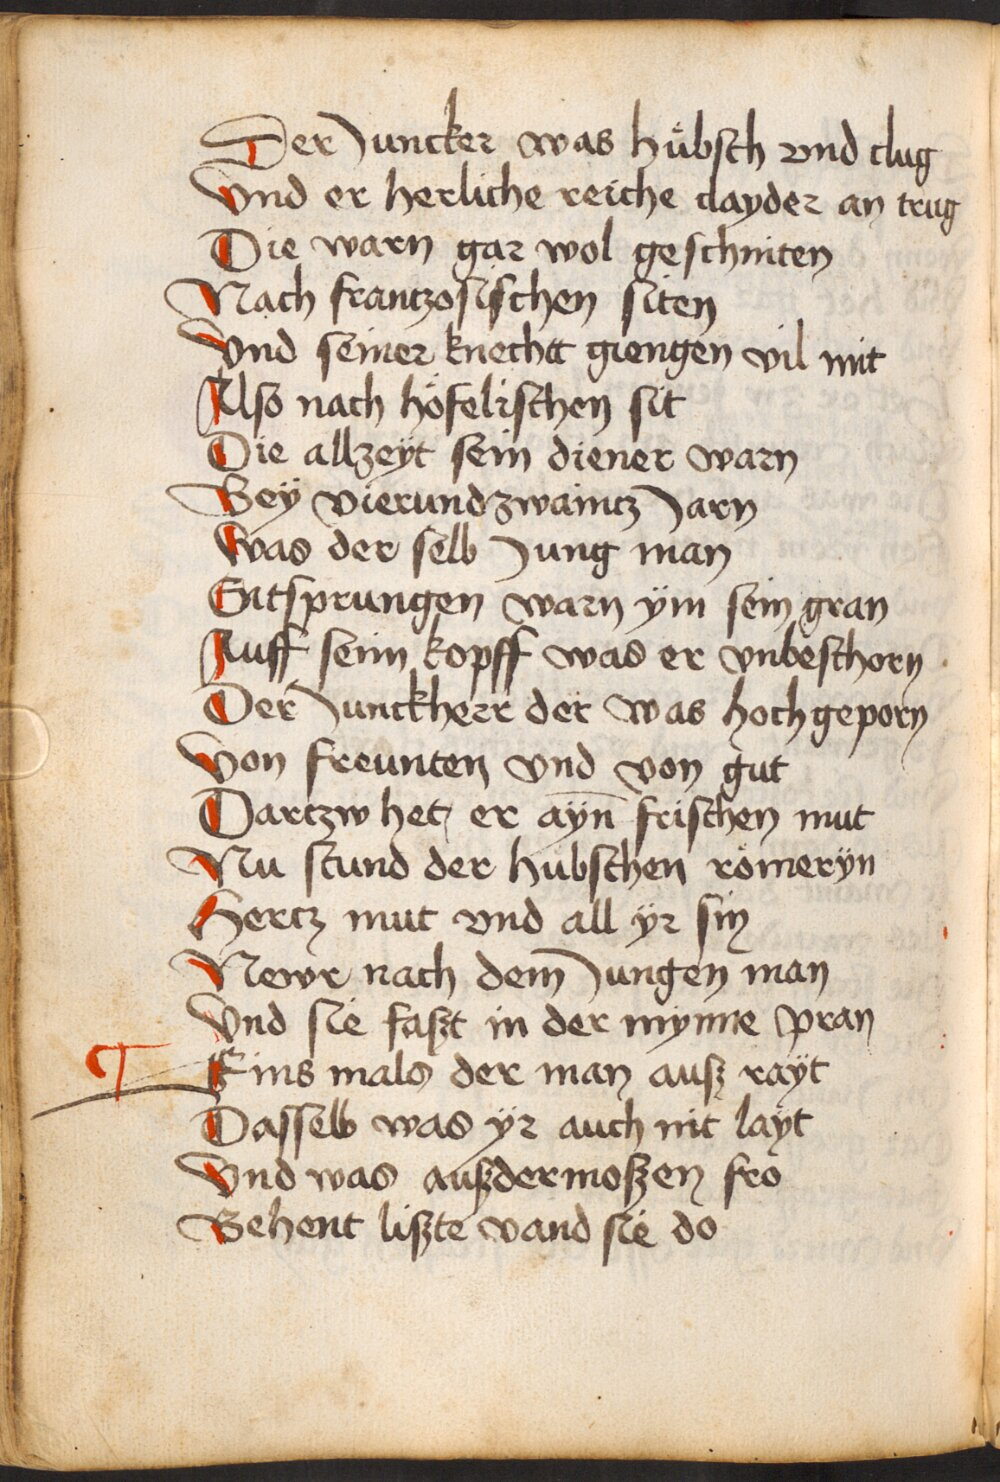 Der Juncker was hübsch vnd clug
Vnd er herliche reiche clayder an trug
Die warn gar wol geschniten
Nach frantzosischen siten
Vnd seiner knecht giengen vil mit
Also nach höfelischen sit
Die allzeÿt sein diener warn
Beÿ vierundzwaintz Jarn
Was der selb Jung man
Entsprungen warn ÿm sein gran
Auff seim kopff was er vnbeschorn
Der Junckherr der was hochgeporn
Von freunten vnd von gut
Dartzw het er aÿn frischen mut
Nu stund der hubschen römerÿn
Hertz mut vnd all ÿr sin
Newr nach dem Jungen man
Vnd sie faszt in der mynne pran
Eins mals der man ausz raÿt
Dasselb was ÿr auch nit laÿt
Vnd was auszdermoszen fro
Behent liszte vand sie do